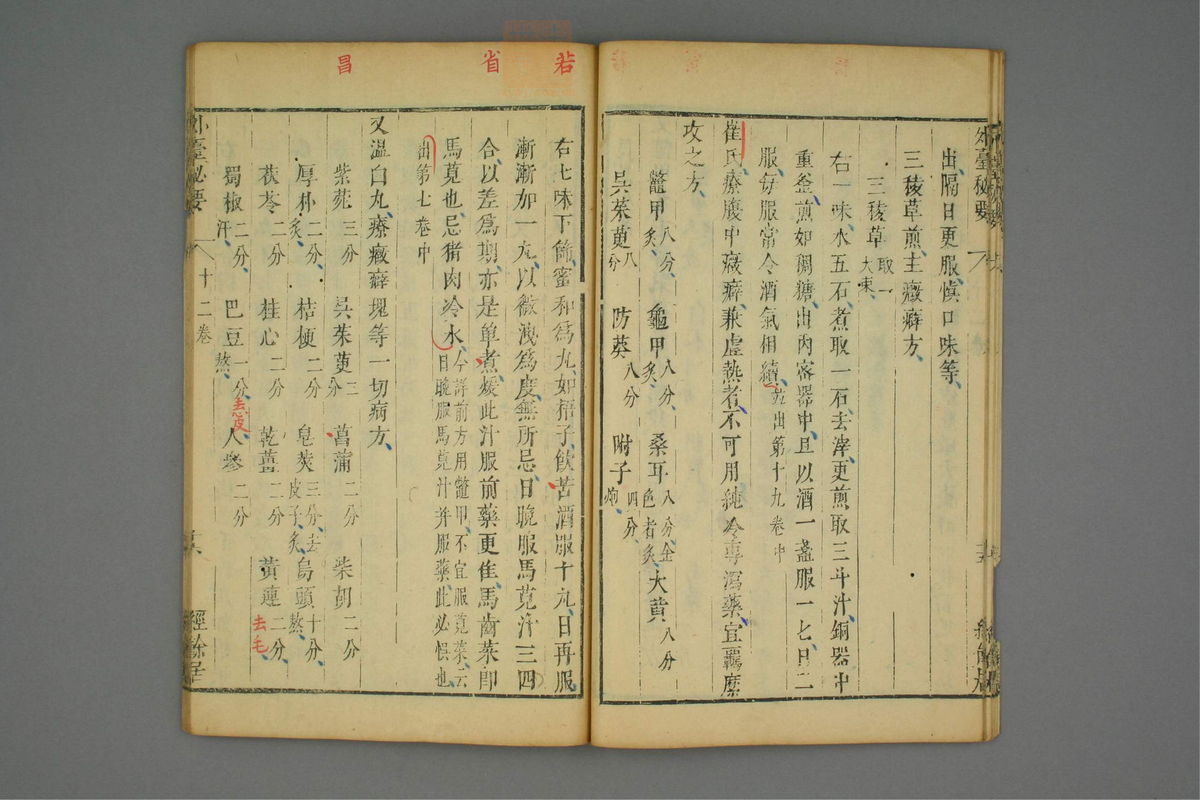 出隔日更服慎口味等
三稜草煎主癥癖方
三稜草取一大束
右一味水五石煮取一石去滓更煎取三斗汁銅器中
重釜煎如稠糖出內密器中且以酒一盞服一匕日二
服每服當令酒氣相續並出第十九卷中
崔氏療腹中癥癖兼虛熱者不可用純冷專瀉藥宜羈縻
攻之方
鼈甲八分炙 龜甲八分炙 桑耳八分金色者炙 大黃八分
吳茱萸八分 防葵八分 附子四分炮
外臺秘要
若
省
昌
右七味下篩蜜和為丸如梧子飲苦酒服十丸日再服
漸漸加一丸以微洩為度無所忌日晚服馬莧汁三四
合以差為期亦是单煮煖此汁服前藥更佳馬齒菜即
馬莧也忌猪肉冷水今詳前方用鼈甲不宜服莧菜云日晚服馬莧汁并服藥此必悞也
出第七卷中
又温白丸療癥癖塊等一切病方
紫菀三分 吳茱萸二分 菖蒲二分 柴胡二分
厚朴二分炙 桔梗二分 皂莢三分去皮子炙 烏頭十分熬
茯苓二分 桂心二分 乾薑二分 黃連二分去毛
蜀椒二分汗 巴豆一分熬去皮 人參二分
外臺秘要 十二卷 經餘居